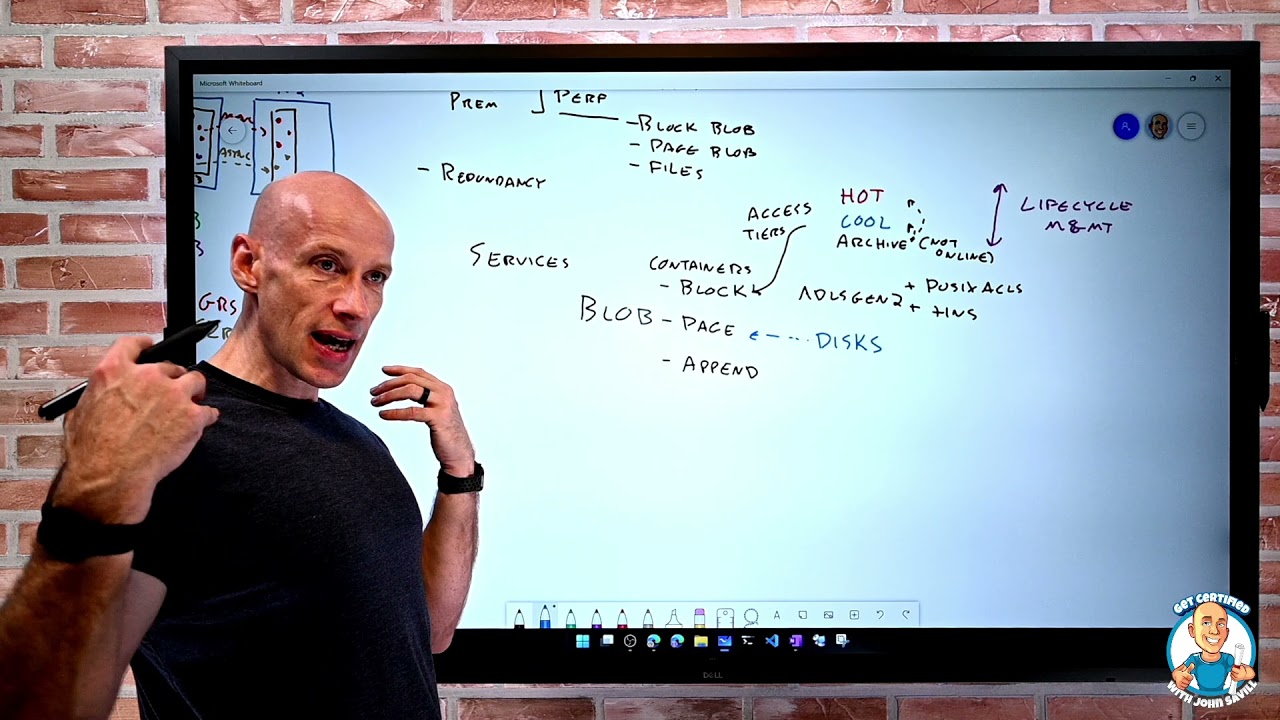 Microsoft Whiteboard
PREM
PERF
- BLOCK BLOB
- PAGE BLOB
- FILES
ASYNC
- REDUNDANCY
ACCESS
TIERS
HOT
COOL
ARCHIVE (NOT
ONLINE)
LIFECYCLE
MGMT
SERVICES
CONTAINERS
- BLOCK
ADLSGEN2
+ POSIX ACLS
+ HNS
GRS
BLOB - PAGE
DISKS
- APPEND
DELL
GET CERTIFIED
WITH JOHN SAVILL